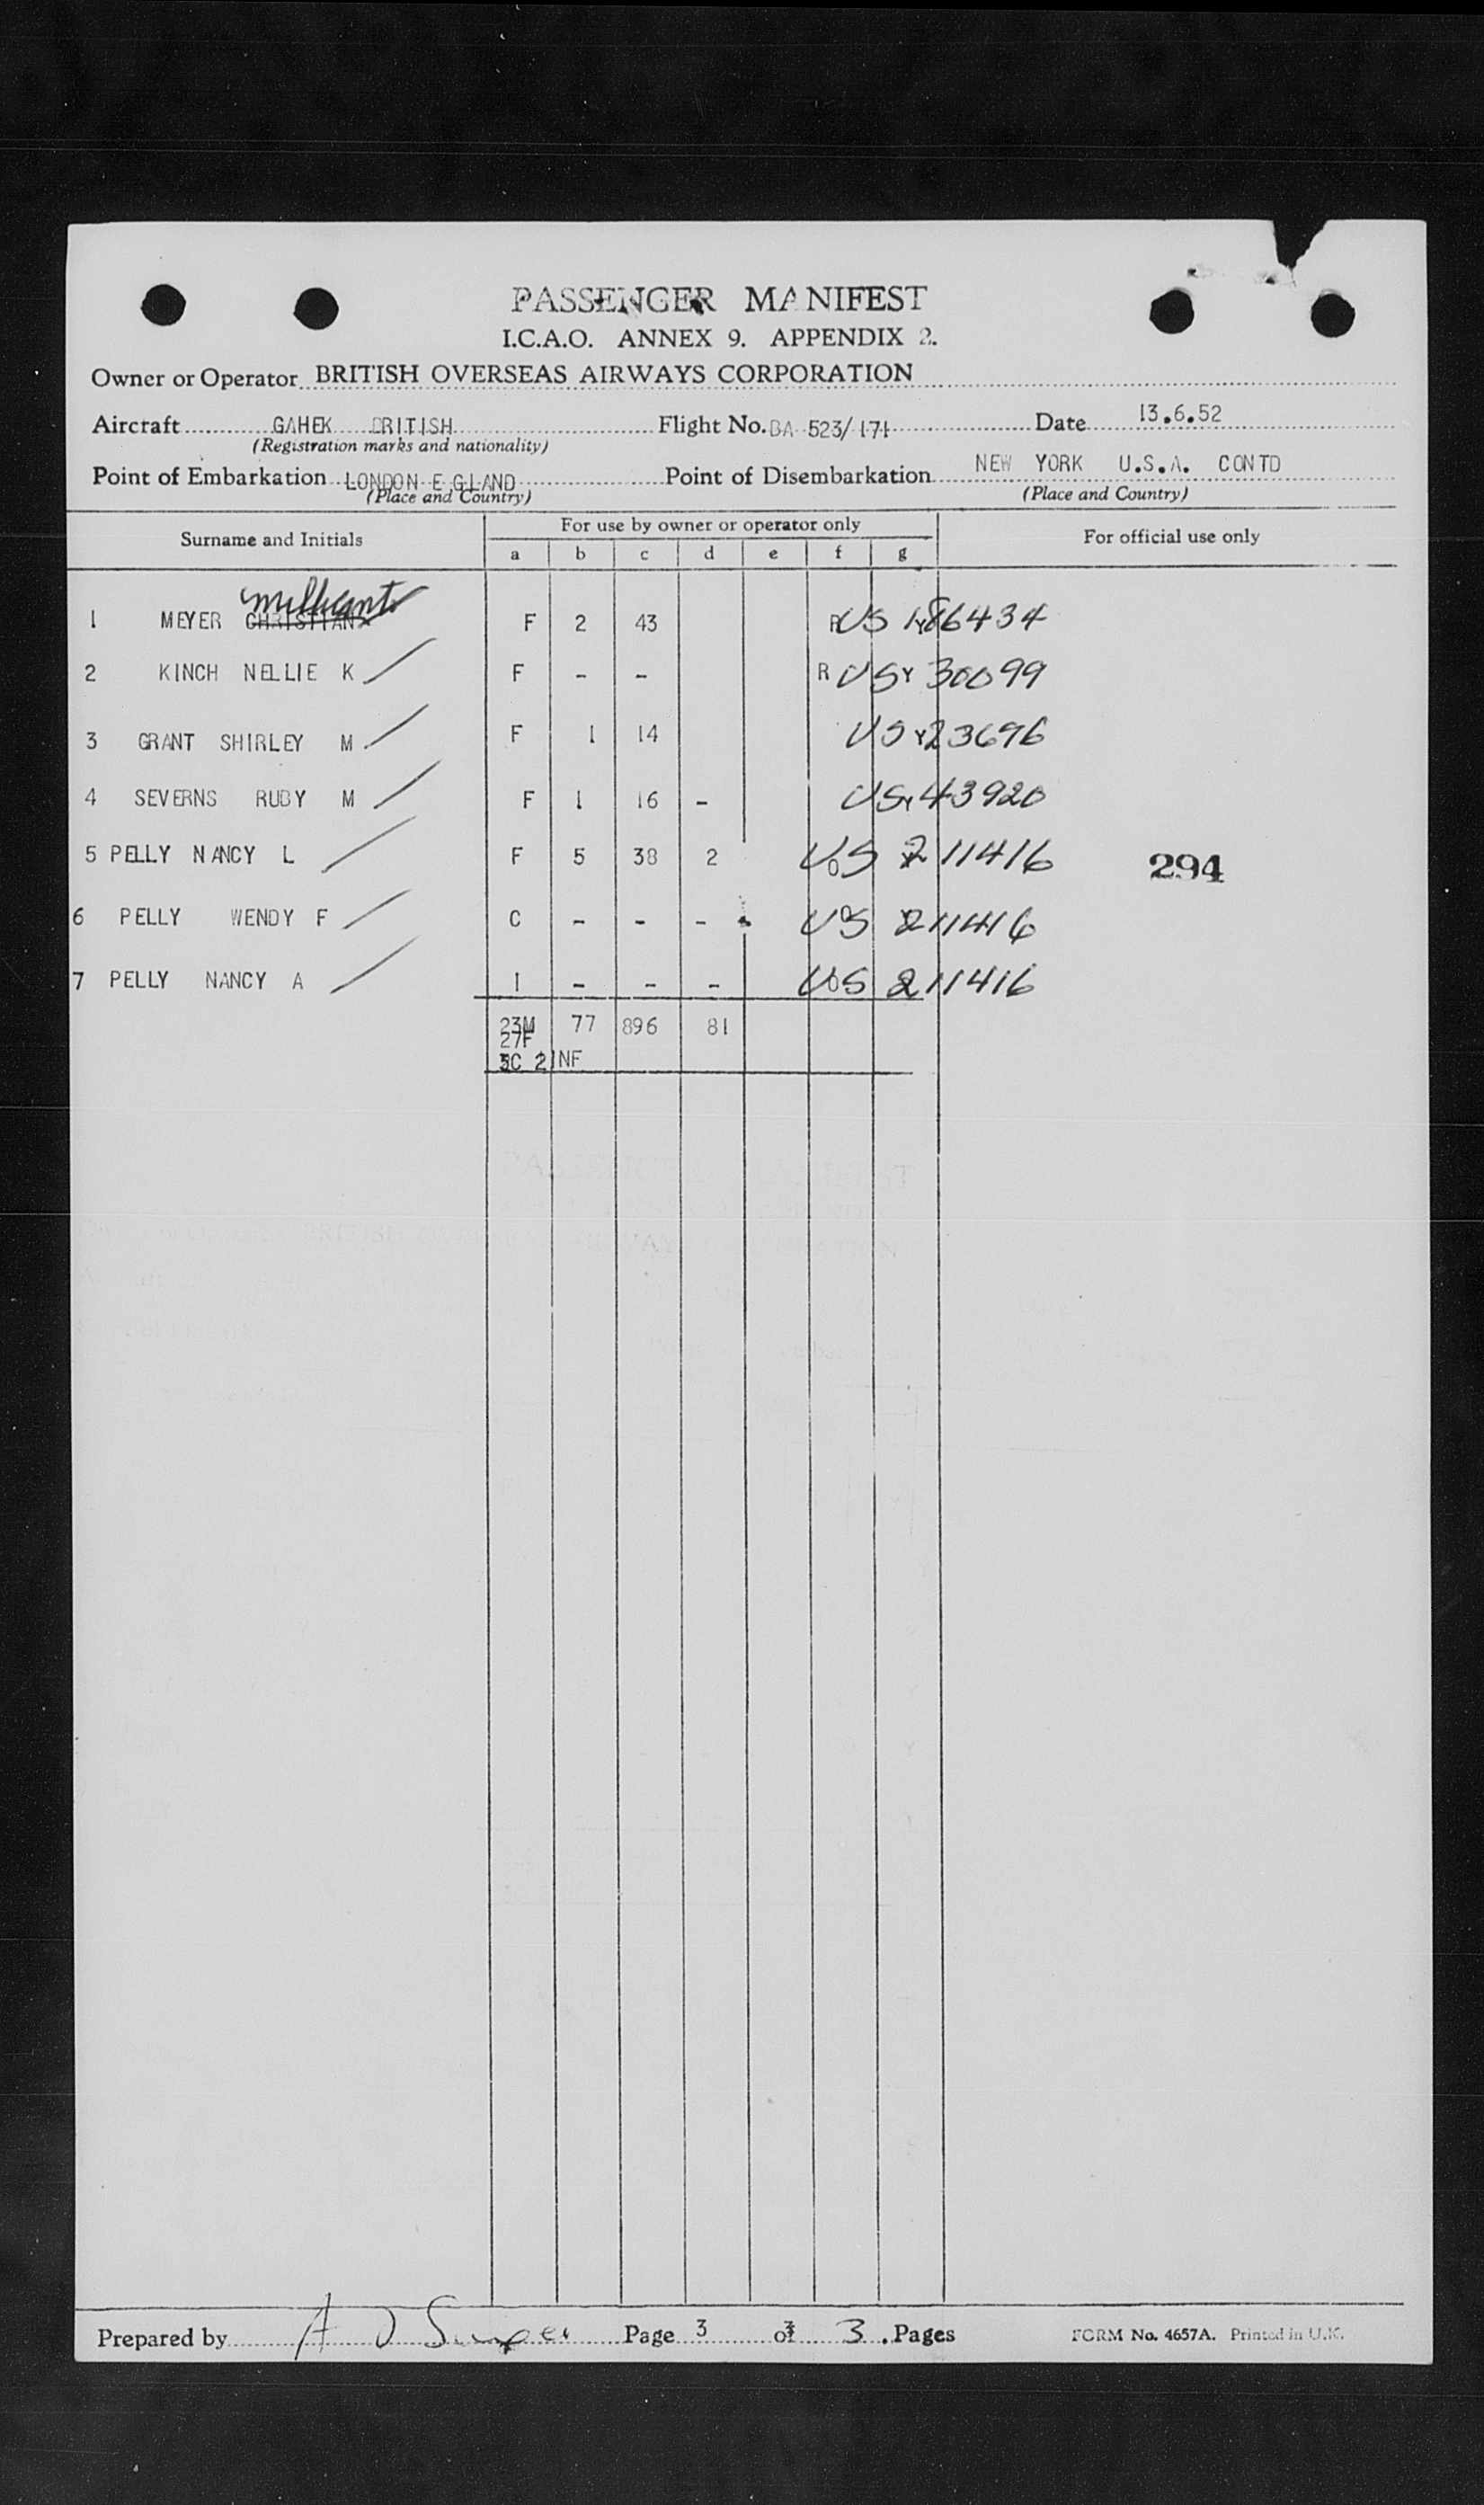 PASSENGER MANIFEST
I.C.A.O. ANNEX 9. APPENDIX 2.
Owner or Operator BRITISH OVERSEAS AIRWAYS CORPORATION
Aircraft GAHEK BRITISH Flight No. BA 523/171 Date 13.6.52
(Registration marks and nationality)
Point of Embarkation LONDON E GLAND Point of Disembarkation NEW YORK U.S.A. CONTD
(Place and Country) (Place and Country)
Surname and Initials For use by owner or operator only For official use only
a b c d e f g
1 MEYER CHRISTIAN F 2 43 R US Y 186434
2 KINCH NELLIE K F - - R US Y 30099
3 GRANT SHIRLEY M F 1 14 US Y 23696
4 SEVERNS RUBY M F 1 16 - US Y 43920
5 PELLY NANCY L F 5 38 2 US 211416
294
6 PELLY WENDY F C - - - US 211416
7 PELLY NANCY A I - - - US 211416
23M 77 896 81
27F
3C 2INF
Prepared by Page 3 of 3 Pages FORM No. 4657A. Printed in U.K.